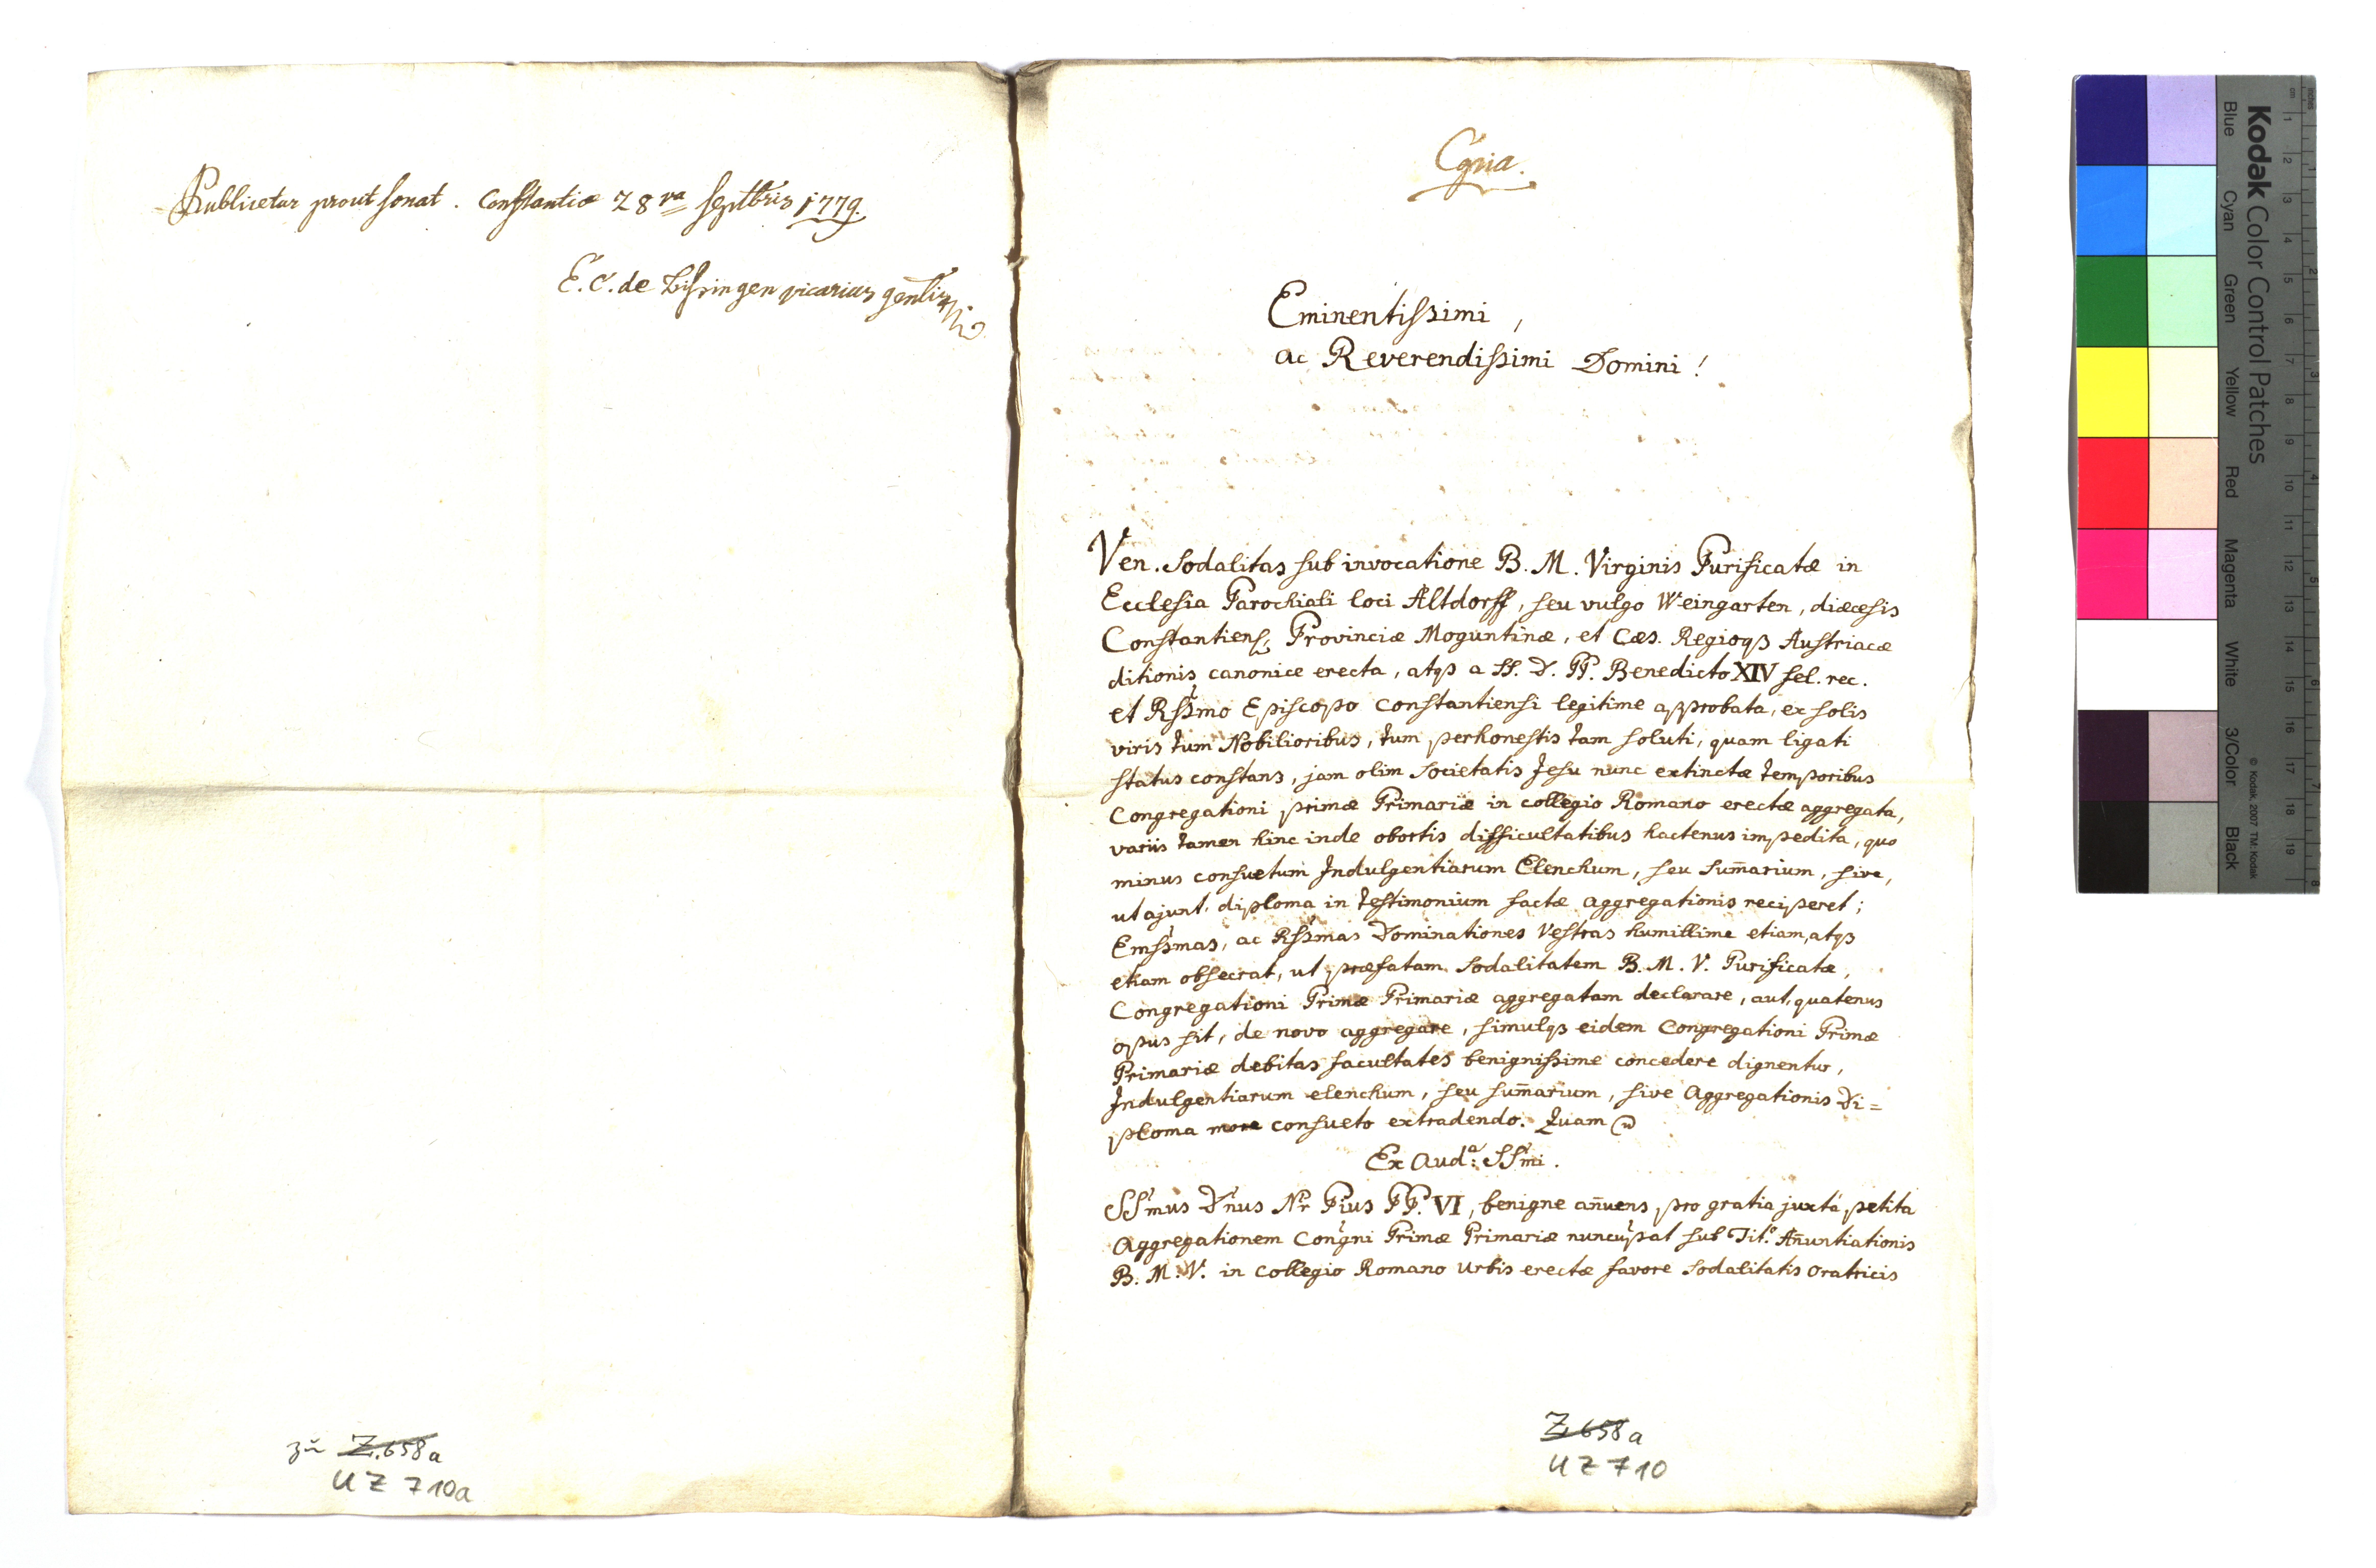 Publicetur prout sonat. Constantiæ 28va Septbris 1779.
E. C. de Bissingen vicarius genlis
zu Z. 658a
UZ 710a
Copia.
Eminentissimi,
ac Reverendissimi Domini!
Ven. Sodalitas sub invocatione B. M. Virginis Purificatæ in
Ecclesia Parochiali loci Altdorff, seu vulgo Weingarten, diæcesis
Constantiens; Provinciæ Moguntinæ, et Cæs. Regioq3 Austriacæ
ditionis canonice erecta, atq3 a SS. D. PP. Benedicto XIV fel. rec.
et Rssmo Episcopo Constantiensi legitime approbata, ex solis
viris tum Nobilioribus, tum perhonestis tam soluti, quam ligati
status constans, jam olim Societatis Jesu nunc extinctæ temporibus
Congregationi primæ Primariæ in collegio Romano erectæ aggregata,
variis tamen hinc inde obortis difficultatibus hactenus impedita, quo
minus consuetum Indulgentiarum Elenchum, seu sum̄arium, sive,
ut ajunt, diploma in testimonium factæ aggregationis reciperet;
Emssmas, ac Rssmas Dominationes Vestras humillime etiam, atq3
etiam obsecrat, ut præfatam Sodalitatem B. M. V. Purificatæ,
Congregationi Primæ Primariæ aggregatam declarare, aut, quatenus
opus sit, de novo aggregare, simulq3 eidem Congregationi Primæ
Primariæ debitas facultates benignissime concedere dignentur,
Indulgentiarum elenchum, seu sum̄arium, sive Aggregationis Di=
ploma more consueto extradendo. Quam
Ex Auda: SSmi.
SSmus Dnus Nr Pius PP. VI, benigne an̄uens pro gratia juxta petita
Aggregationem Congni Primæ Primariæ nuncupat sub Tito. An̄untiationis
B. M. V. in Collegio Romano Urbis erectæ favore Sodalitatis Oratricis
Z 658a
UZ 710
Kodak Color Control Patches
Blue Cyan Green Yellow Red Magenta White 3/Color Black
© Kodak, 2007 TM: Kodak
inches 1 2 3 4 5 6 7 8
cm 1 2 3 4 5 6 7 8 9 10 11 12 13 14 15 16 17 18 19